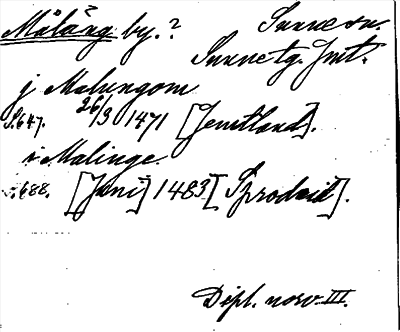 Målång by.? Sunne sn.
Sunne tg. Jmt.
j Malungom
S.647. 26/3 1471 [Jemtland].
i Malinge
S.688. [Juni] 1483 [Sprodeid].
Dipl. norv. III.